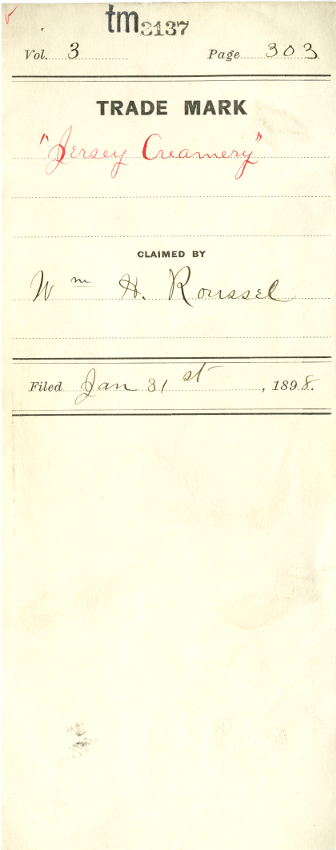 tm3137
Vol. 3 Page 303
TRADE MARK
"Jersey Creamery"
CLAIMED BY
Wm H. Roussel
Filed Jan 31st, 1898.